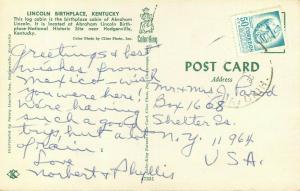 LINCOLN BIRTHPLACE, KENTUCKY
This log cabin is the birthplace cabin of Abraham
Lincoln. It is located at Abraham Lincoln Birth-
place National Historic Site near Hodgenville,
Kentucky.
Color Photo by Cline Photo, Inc.
ColorKing
Greetings & best
wishes from
Mexico wish
you were here!
Were having
such a good
trip, but a lot
of rain.
Love
Norbert & Phyllis
POST CARD
Address
Mrs. J.
Box 1668
Shelter Is.
N.Y. 11964
U.S.A.